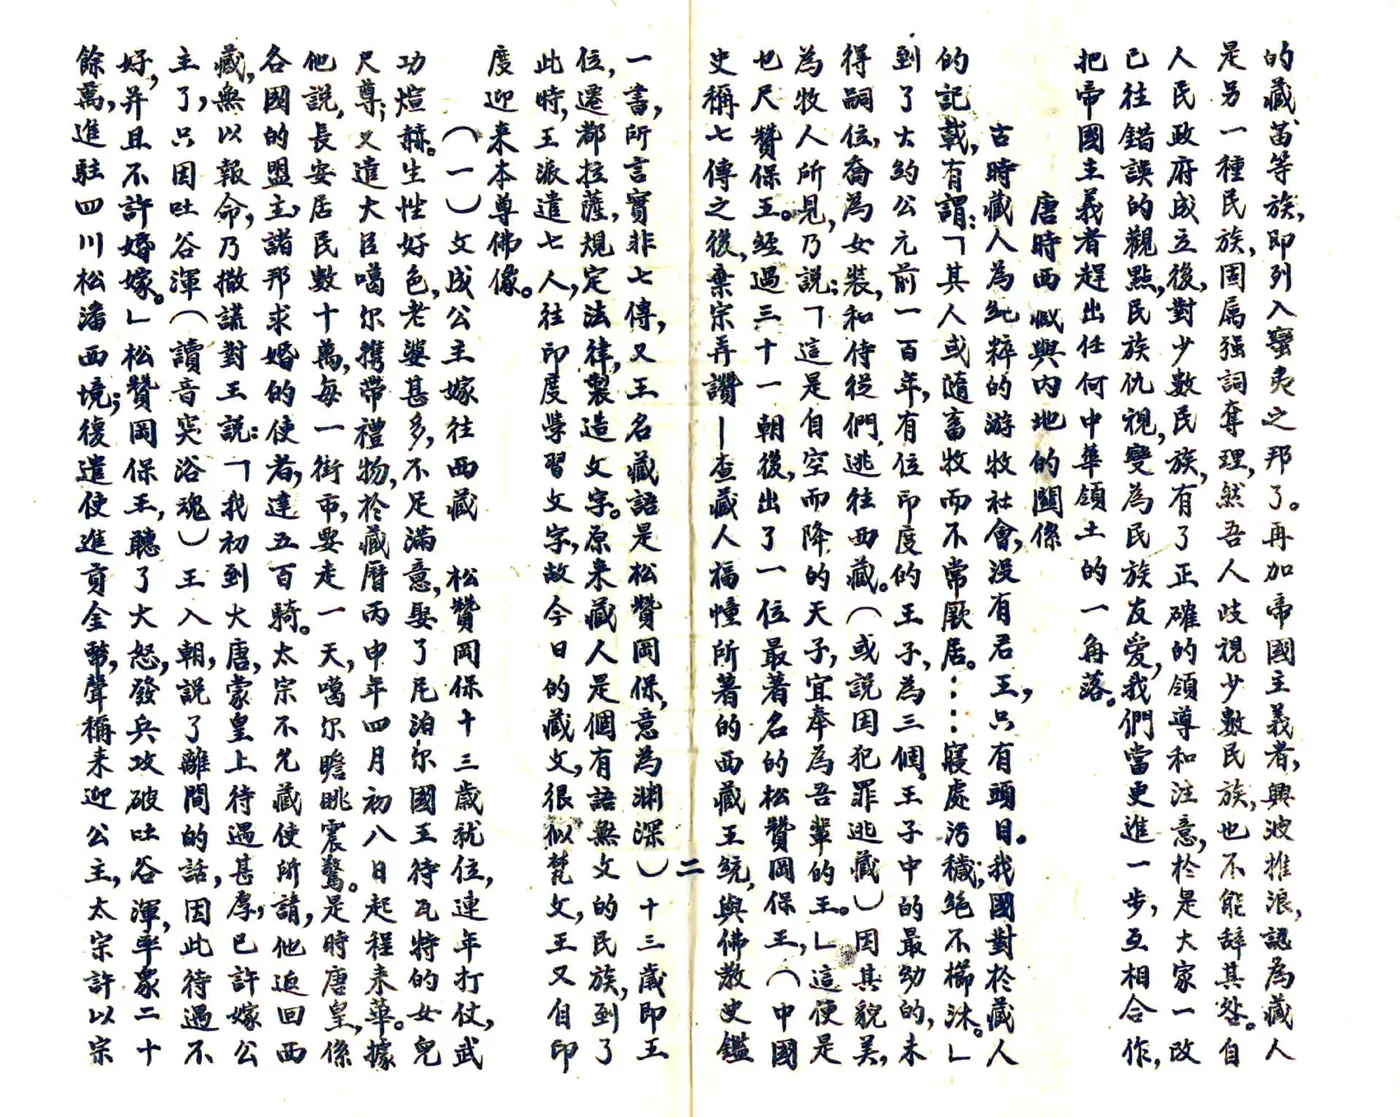 的藏、苗等族,即列入蠻夷之邦了。再加帝國主義者,興波推浪,認為藏人
是另一種民族,固属强詞奪理,然吾人歧視少數民族,也不能辞其咎。自
人民政府成立後,對少數民族,有了正確的領導和注意,於是大家一改
已往錯誤的觀點,民族仇視,變為民族友愛,我們當更進一步,互相合作,
把帝國主義者趕出任何中華領土的一角落。
唐時西藏與内地的關係
古時藏人為純粹的游牧社會,沒有君王,只有頭目。我國對於藏人
的記載,有謂:「其人或隨畜牧而不常厥居。⋯⋯寢處污穢,絕不櫛沐。」
到了大約公元前一百年,有位印度的王子,為三個王子中的最幼的,未
得嗣位,喬為女裝,和侍從們逃往西藏。(或説因犯罪逃藏)因其貌美,
為牧人所見,乃説:「這是自空而降的天子,宜奉為吾輩的王。」這便是
也尺贊保王。經過三十一朝後,出了一位最著名的松贊岡保王,(中國
史稱七傳之後,棄宗弄讚—查藏人福幢所著的西藏王統,與佛教史鑑
一書,所言實非七傳,又王名藏語是松贊岡保,意為淵深)十三歲即王
位,遷都拉薩,規定法律,製造文字。原来藏人是個有語無文的民族,到了
此時,王派遣七人,往印度學習文字,故今日的藏文,很似梵文,王又自印
度迎来本尊佛像。
(一)文成公主嫁往西藏 松贊岡保十三歲就位,連年打仗,武
功煊赫。生性好色,老婆甚多,不足滿意,娶了尼泊尔國王待瓦特的女兒
尺尊;又遣大臣噶尔携带禮物,於藏曆丙申年四月初八日起程来華。據
他説,長安居民數十萬,每一街市,要走一天,噶尔瞻眺震驚。是時唐皇,係
各國的盟主,諸邦求婚的使者,達五百騎。太宗不允藏使所請,他返回西
藏,無以報命,乃撒謊對王説:「我初到大唐,蒙皇上待遇甚厚,已許嫁公
主了,只因吐谷渾(讀音突浴魂)王入朝,説了離間的話,因此待遇不
好,并且不許婚嫁。」松贊岡保王,聽了大怒,發兵攻破吐谷渾,率衆二十
餘萬,進駐四川松潘西境;復遣使進貢金幣,聲稱来迎公主,太宗許以宗
二